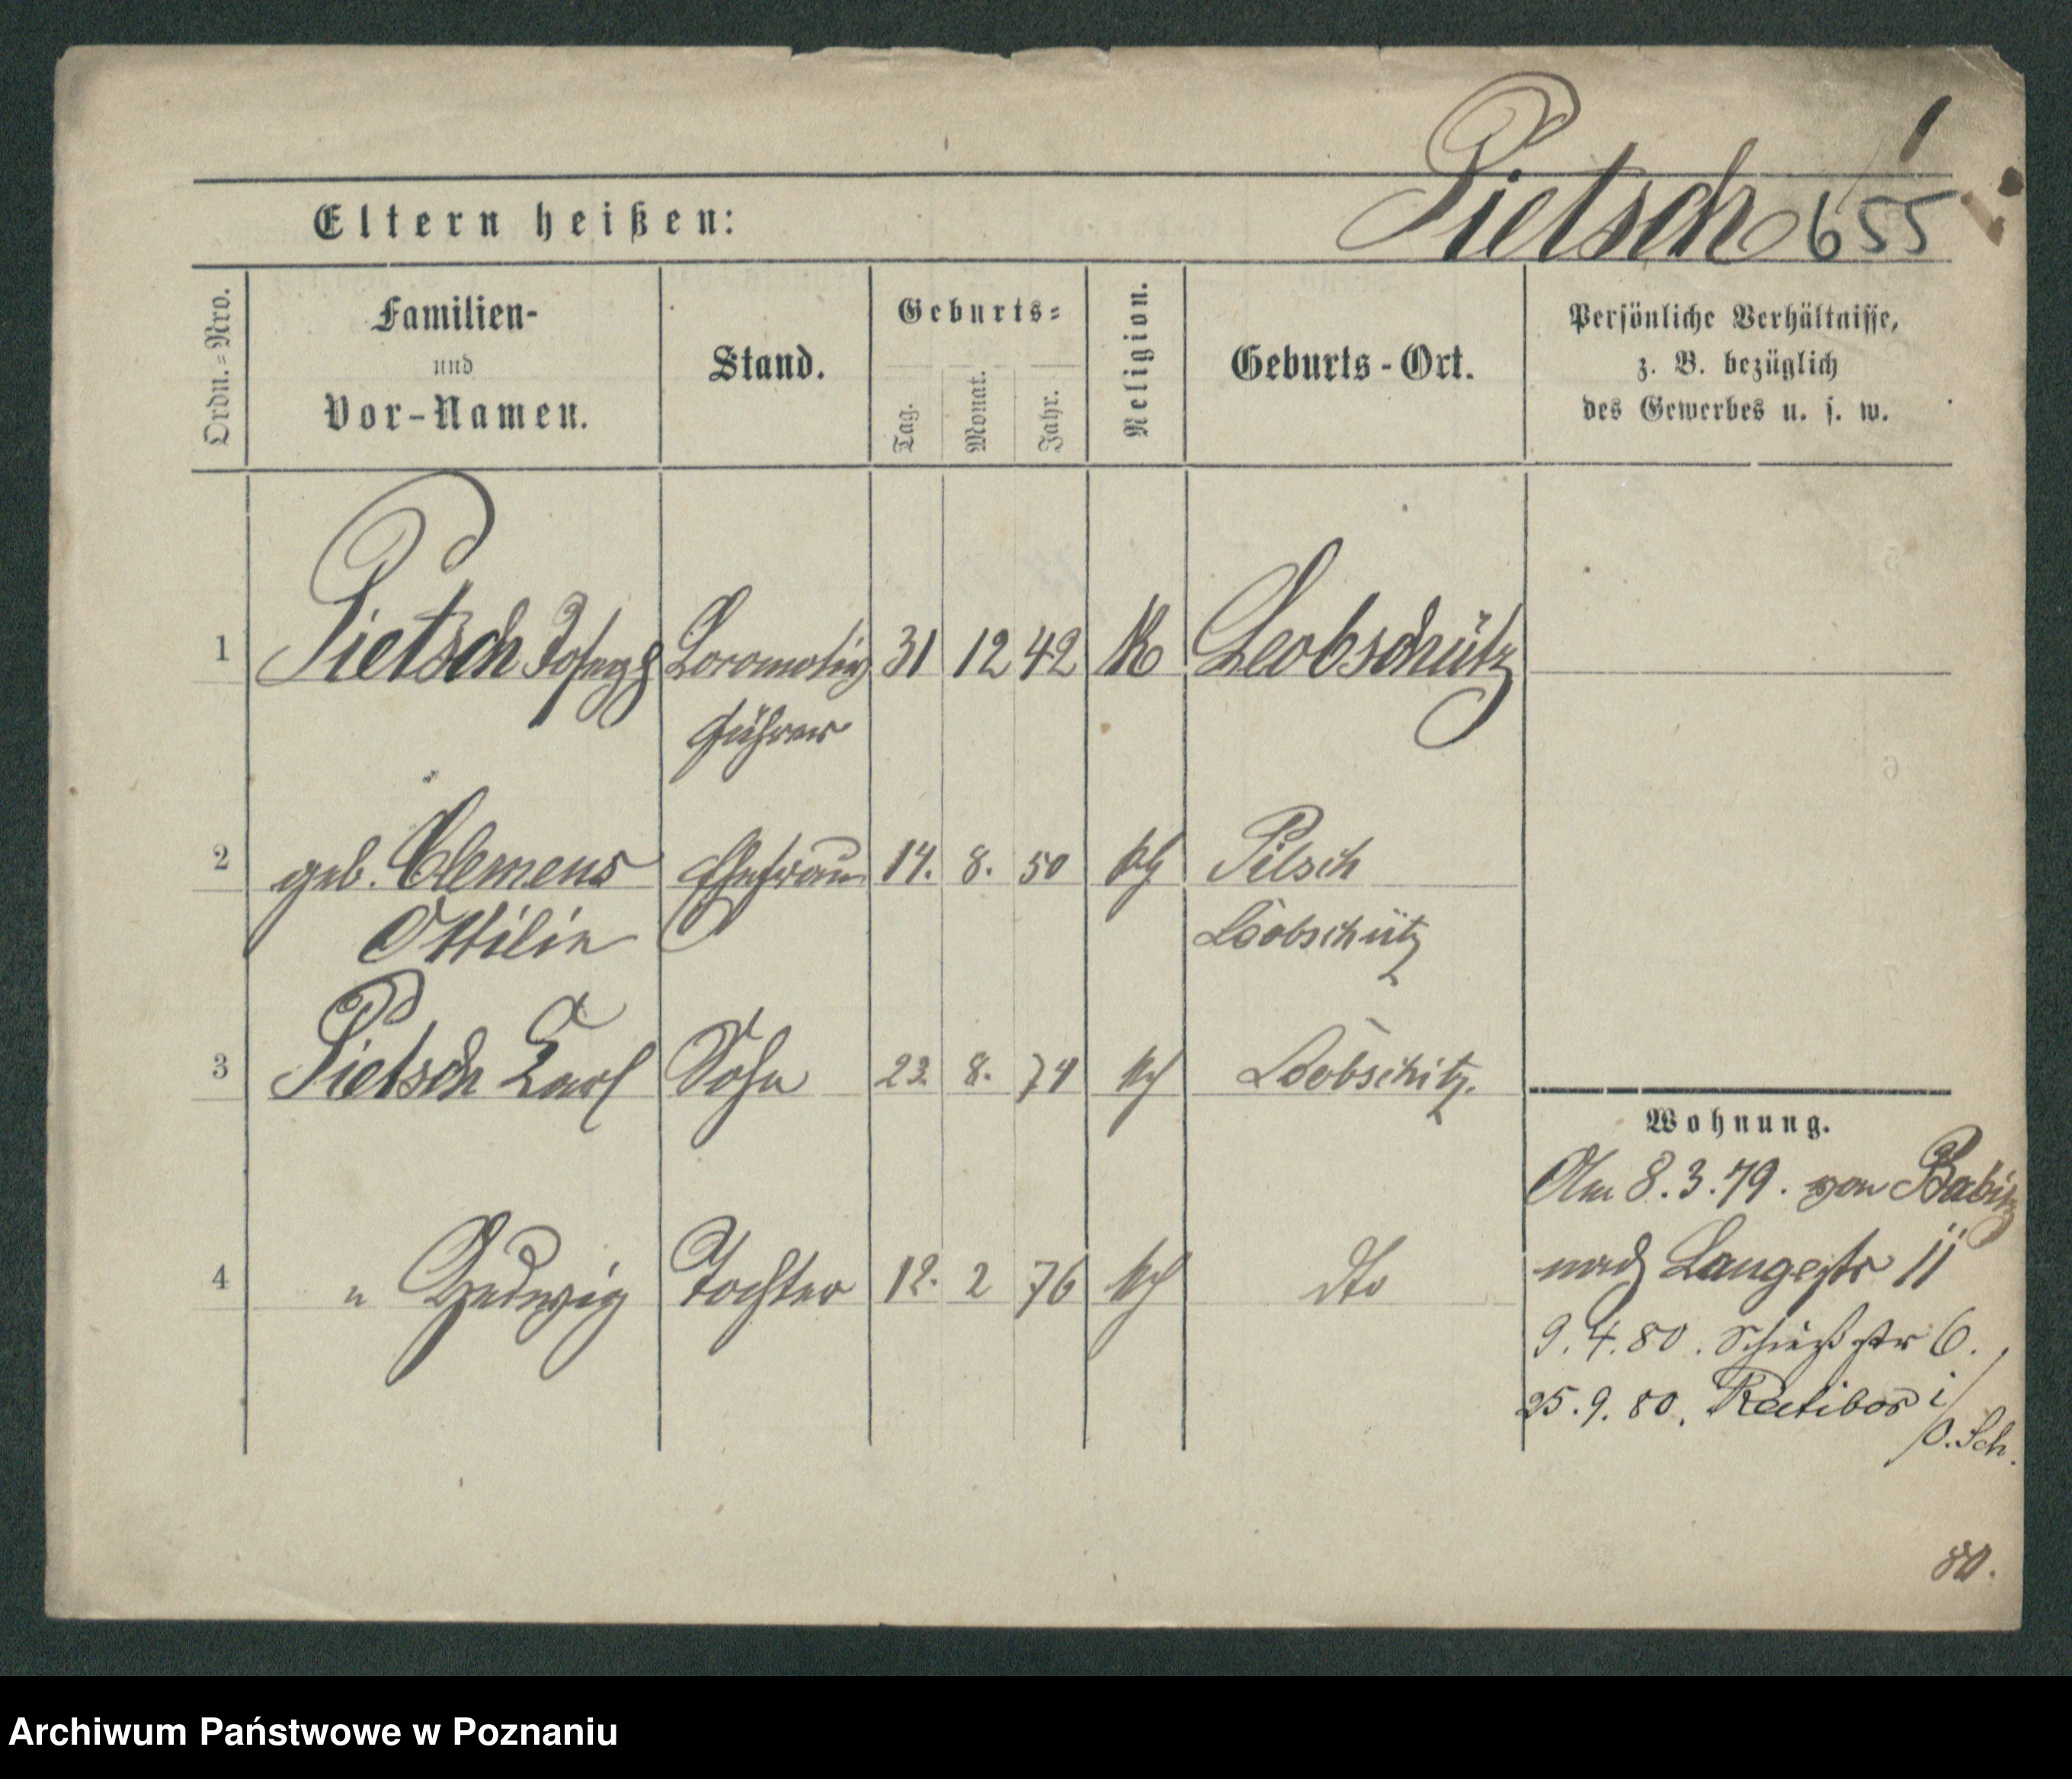 1
Pietsch 655
Eltern heißen:
Ordn.=Nro.
Familien-
und
Vor-Namen.
Stand.
Geburts=
Tag.
Monat.
Jahr.
Religion.
Geburts-Ort.
Persönliche Verhältnisse,
z. B. bezüglich
des Gewerbes u. s. w.
1 Pietsch Joseph Locomotiv 31 12 42 K Leobschütz
führer
2 geb. Clemens Ehefrau 14. 8. 50 kth Pilsch
Ottilie Leobschütz
3 Pietsch Carl Sohn 23. 8. 74 kth Leobschütz.
Wohnung.
Am 8.3.79. von
4 " Hedwig Tochter 12. 2 76 kth dto
nach Langestr 11
9.4.80. Schießstr 6.
25.9.80. Ratibor i/
O. Sch.
80.
Archiwum Państwowe w Poznaniu